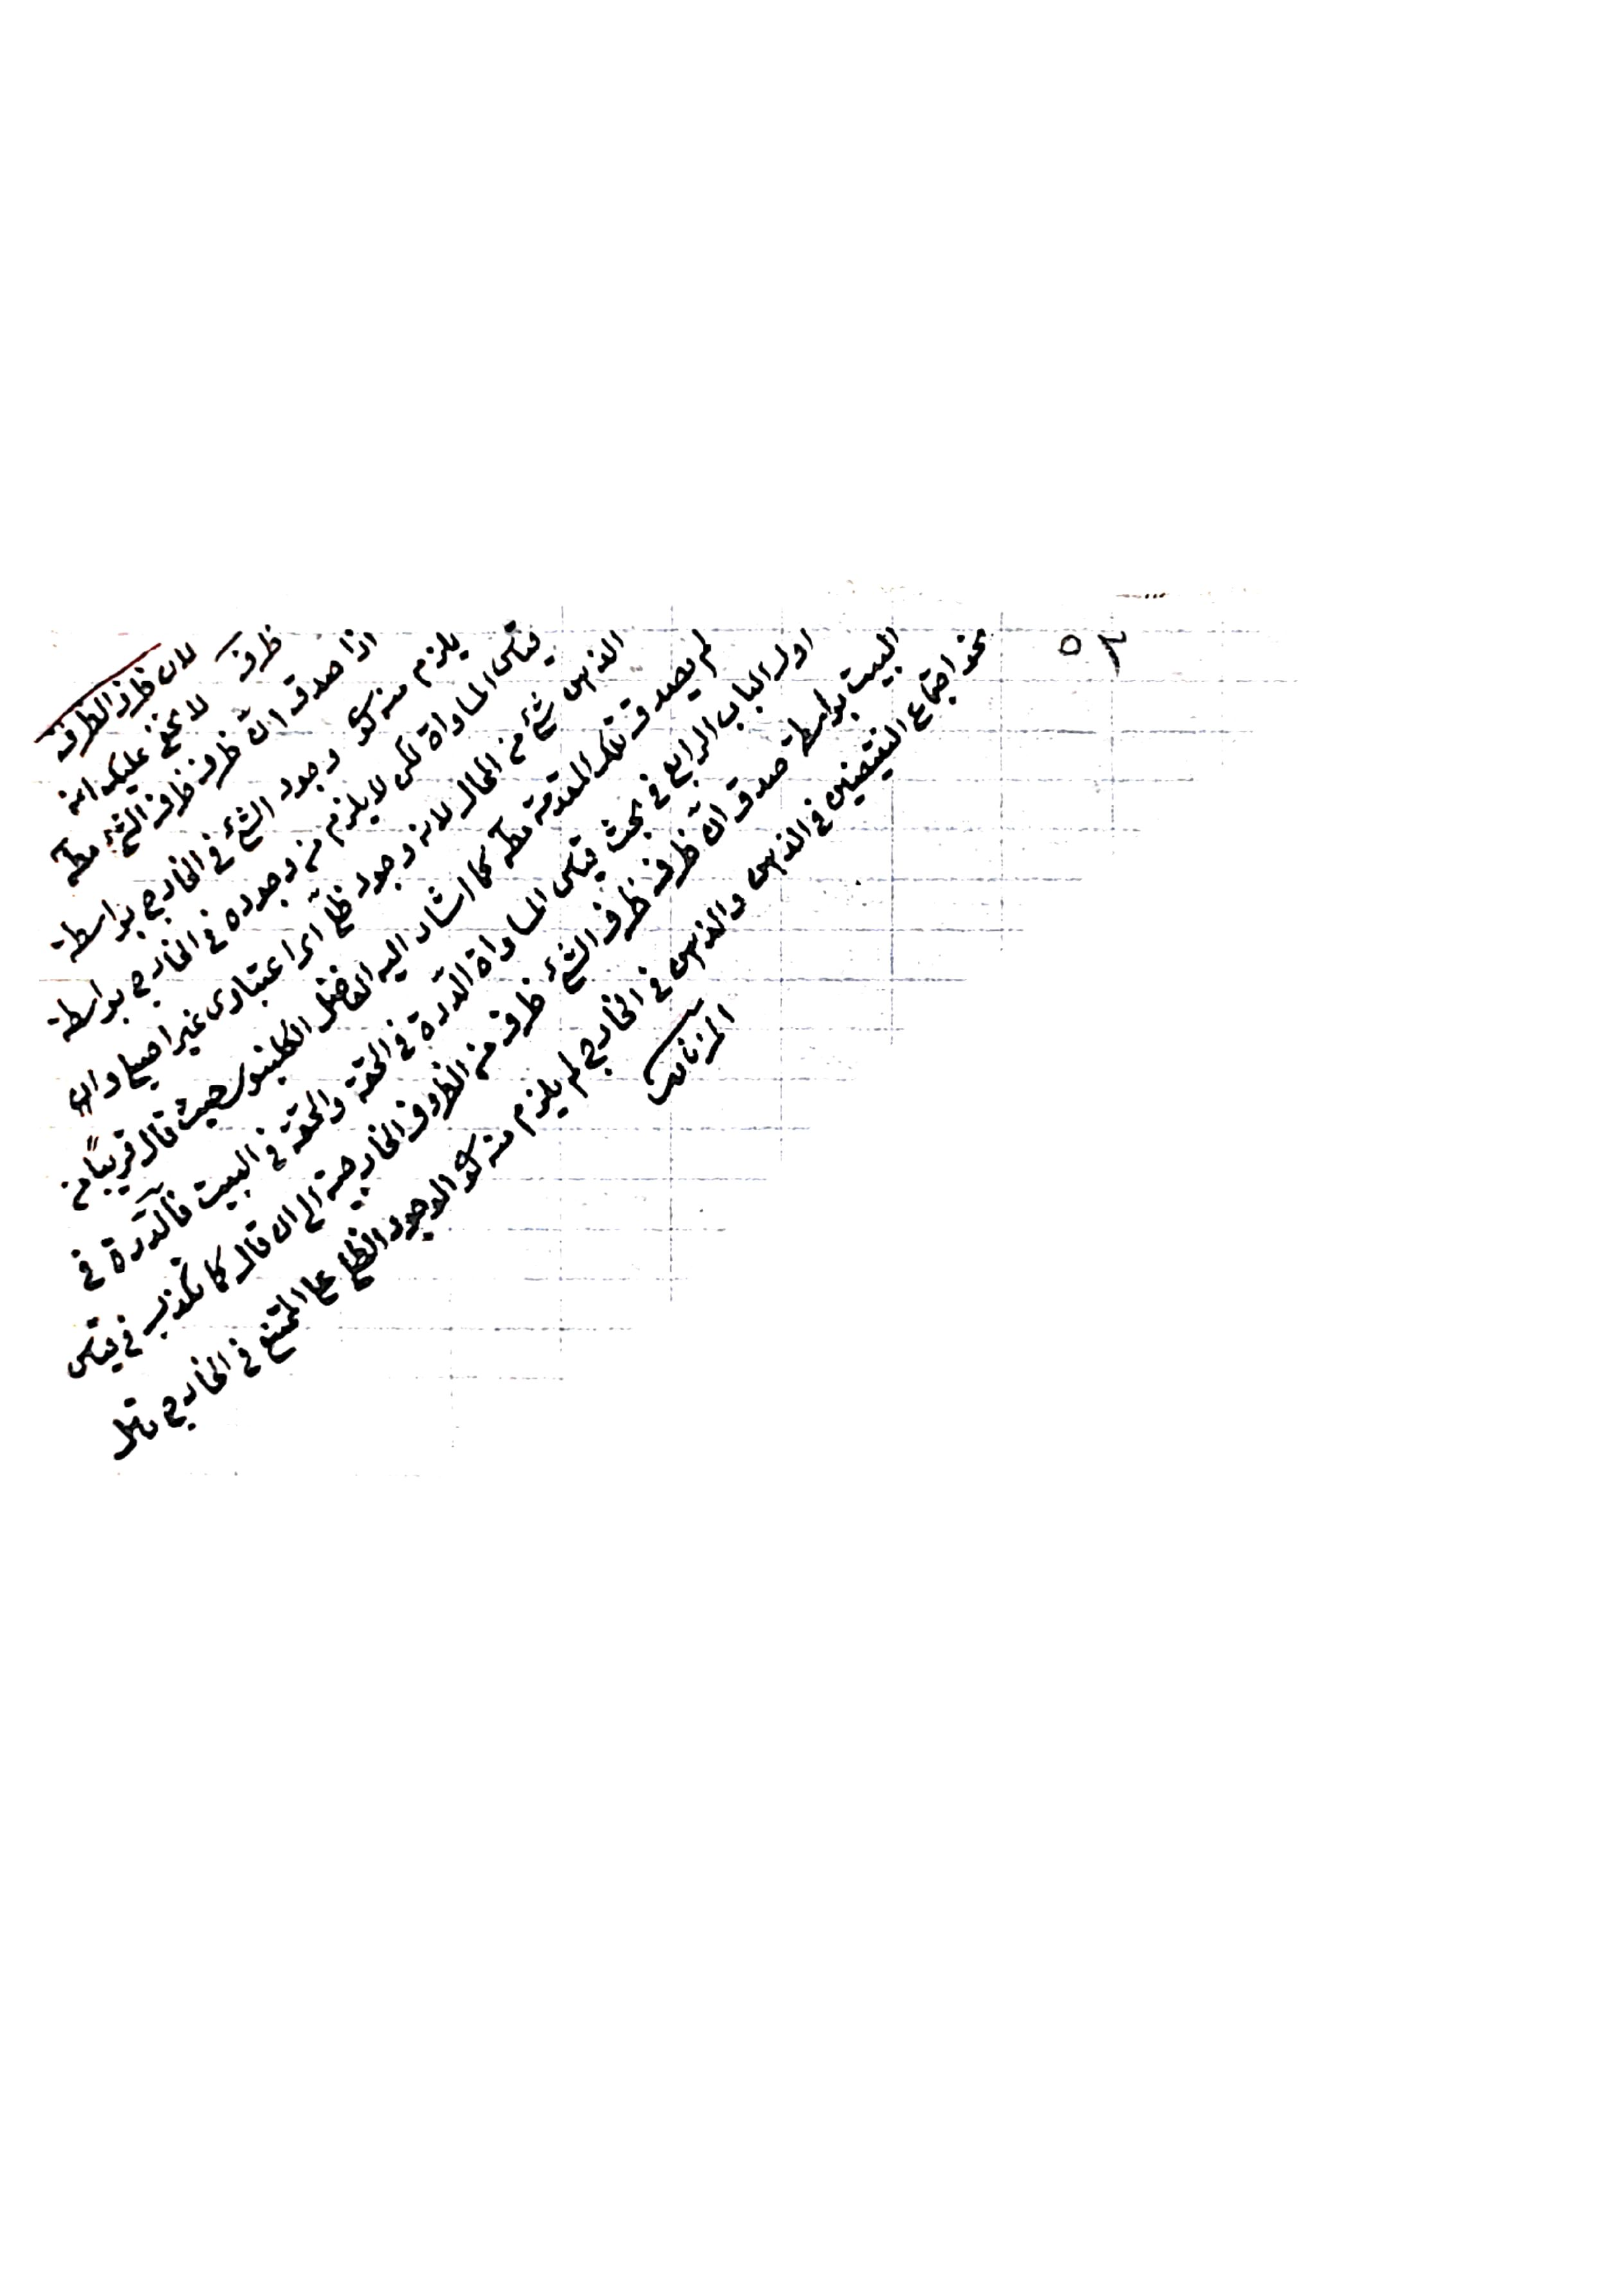 ٥٣
لان ظرف الظرف
ظرف لا يخفى عليك انه
اذا صدق ان ظرف ظرف الشئ مط
يلزم منه كو وجود الشئ في الخارج بواسطة
قياس المساواة لكن لا يلزم من وجوده في الخارج بواسطة
الذهن شئ من المحال لانه وجود ظلي اى اعتبارى غير اصيل وان
لم يصدق تلك المقدمة مط كما اشار اليه الفاضل الكلنبوى حيث قال قريبا من
اول الباب الرابع في بحث قياس المساواة الدرة في الحقة والحقة في البيت فالدرة في
البيت بواسطة صدق ان ظرف ظرف الشئ ظرف من الظروف الخارجية الى ان قال كا لكذب في قياس
نحو اجتماع النقيضين في الذهن والذهن في الخارج لم يلزم منه كو الوجود الظلي للممتنع في الخارج